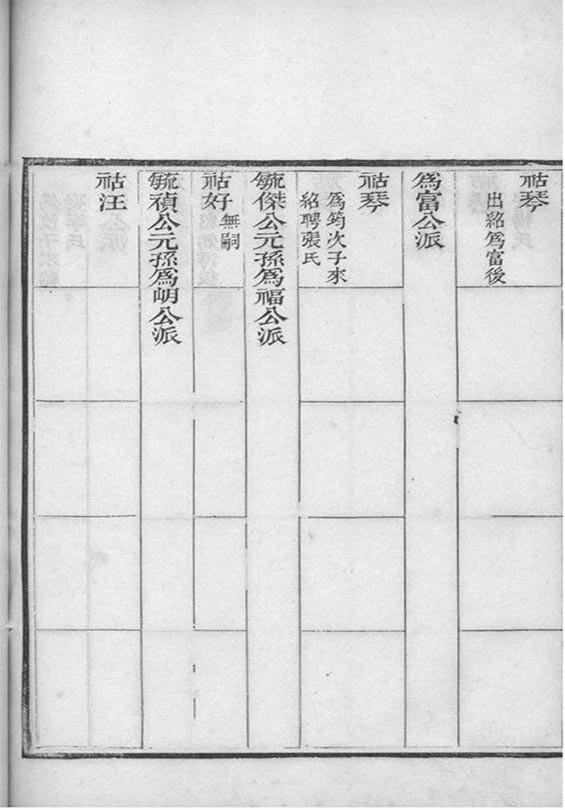 祜琴
出紹爲富後
爲富公派
祜琴
爲筠次子來
紹聘張氏
毓傑公元孫爲福公派
祜好
無嗣
毓禎公元孫爲明公派
祜汪